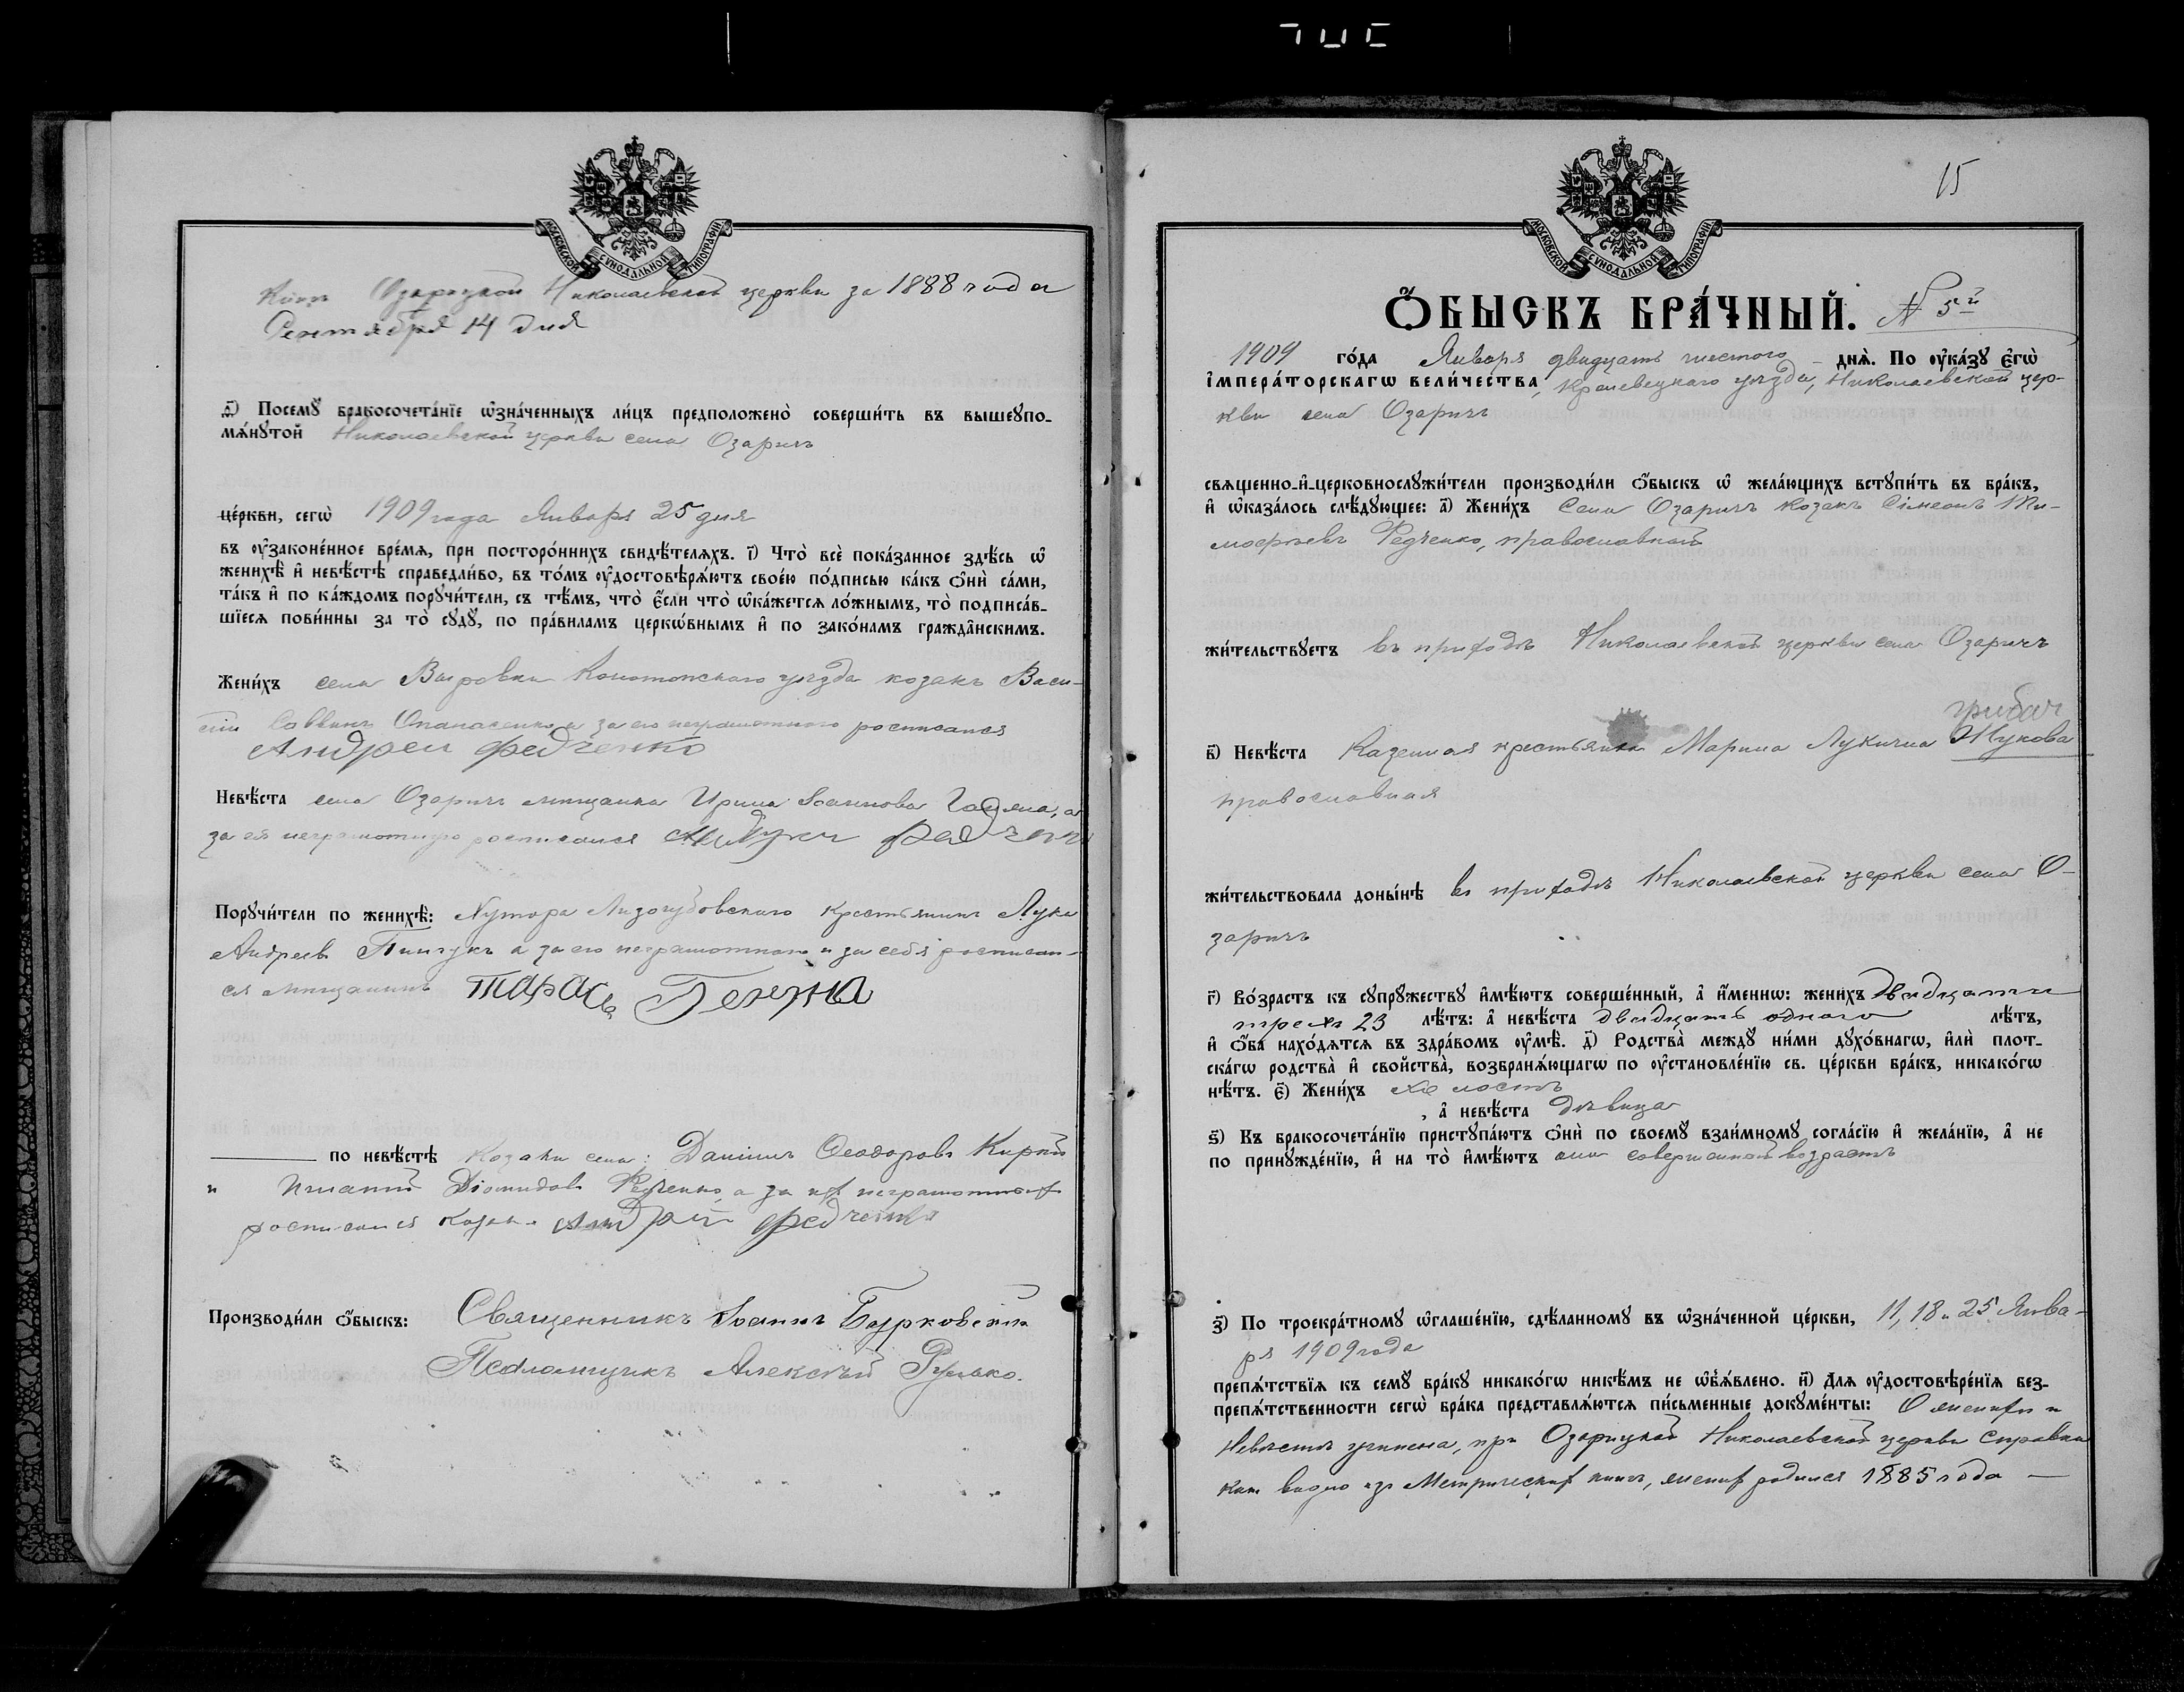 МОСКОВСКОЙ СѴНОДАЛЬНОЙ ТИПОГРАФІИ.
Озарицкой Николаевской церкви за 1888 года
Сентября 14 дня
Посемꙋ бракосочета́нїе ѿзна́ченныхъ ли́цъ предположено̀ соверши́ть въ вышеꙋпо-
мѧ́нꙋтой Николаевской церкви села Озаричъ
це́ркви, сегѡ̀ 1909 года Января 25 дня
въ ᲂу҆законе́нное вре́мѧ, при посторо́ннихъ свидѣ́телѧхъ. і҃) Что̀ всѐ пока́занное здѣ́сь ѡ҆
женихѣ̀ и҆ невѣ́стѣ справедли́во, въ то́мъ ᲂу҆достовѣрѧ́ютъ свое́ю по́дписью ка́къ ѻ҆нѝ са́ми,
та́къ и҆ по ка́ждомъ порꙋчи́тели, съ тѣ́мъ, что̀ є҆́сли что̀ ѡ҆ка́жетсѧ ло́жнымъ, то̀ подписа́в-
шїесѧ пови́нны за то̀ сꙋдꙋ̀, по пра́виламъ церкѡ́внымъ и҆ по зако́намъ гражда̑нскимъ.
Жени́хъ села Выровки Конотопскаго уѣзда козакъ Васи-
лій Саввинъ Опанасенко а за его неграмотнаго росписался
Андрей Федченко
Невѣ́ста села Озаричъ мѣщанка Ирина Іоаннова а
за ея неграмотную росписался
Порꙋчи́тели по женихѣ̀: Хутора Лизогубовскаго крестьянинъ Лука
Андреевъ а за его неграмотнаго и за себя росписал-
ся мѣщанинъ Тарасъ
по невѣ́стѣ Козаки села: Даніилъ Ѳеодоровъ
и Игнатій Діомидовъ Федченко, а за ихъ неграмотныхъ
росписался козакъ Андрей Федченко
Производи́ли ѻ҆́быскъ: Священникъ Іоаннъ
Псаломщикъ Алексѣй
15
МОСКОВСКОЙ СѴНОДАЛЬНОЙ ТИПОГРАФІИ.
Ѻ҆БЫСКЪ БРА́ЧНЫЙ. № 5й
1909 го́да Января двадцать шестого днѧ̀. По ᲂу҆ка́зꙋ є҆гѡ̀
і҆мпера́торскагѡ вели́чества, Кролевецкаго уѣзда, Николаевской цер-
кви села Озаричъ
свѧщенно-и҆-церковнослꙋжи́тели производи́ли ѻ҆́быскъ ѡ҆ жела́ющихъ встꙋпи́ть въ бра́къ,
и҆ ѡ҆каза́лось слѣ́дꙋющее: а҃) Жени́хъ Села Озаричъ козакъ Сімеонъ Ти-
моѳеевъ Федченко, православный
жи́тельствꙋетъ въ приходѣ Николаевской церкви села Озаричъ
грибач
в҃) Невѣ́ста Казенная крестьянка Марина Лукична Жукова
православная
жи́тельствовала доны́нѣ въ приходѣ Николаевской церкви села О-
заричъ
г҃) Во́зрастъ къ сꙋпрꙋ́жествꙋ и҆мѣ́ютъ соверше́нный, а҆ и҆́меннѡ: жени́хъ двадцати
трехъ 23 лѣ́тъ: а҆ невѣ́ста двадцать одного лѣ́тъ,
и҆ ѻ҆́ба нахо́дѧтсѧ въ здра́вомъ ᲂу҆мѣ̀. д҃) Родства̀ междꙋ̀ ни́ми дꙋхо́внагѡ, и҆лѝ плот-
ска́гѡ родства̀ и҆ сво́йства, возбранѧ́ющагѡ по ᲂу҆становле́нїю св. це́ркви бра́къ, никако́гѡ
нѣ́тъ. є҃) Жени́хъ холостъ
, а҆ невѣ́ста дѣвица
ѕ҃) Къ бракосочета́нїю пристꙋпа́ютъ ѻ҆нѝ по своемꙋ̀ взаи́мномꙋ согла́сїю и҆ жела́нїю, а҆ не
по принꙋжде́нїю, и҆ на то̀ и҆мѣ́ютъ они совершенный возрастъ
з҃) По троекра́тномꙋ ѡ҆глаше́нїю, сдѣ́ланномꙋ въ ѡ҆зна́ченной це́ркви, 11, 18 и 25 Янва-
ря 1909 года
препѧ́тствїѧ къ семꙋ̀ бра́кꙋ никако́гѡ никѣ́мъ не ѡ҆б̾ѧ́влено. и҃) Длѧ ᲂу҆достовѣре́нїѧ без-
препѧ́тственности сегѡ̀ бра́ка представлѧ́ютсѧ пи́сьменные докꙋме́нты: О женихѣ и
невѣстѣ учинена, при Озарицкой Николаевской церкви справка
какъ видно изъ Метрическихъ книгъ, женихъ родился 1885 года